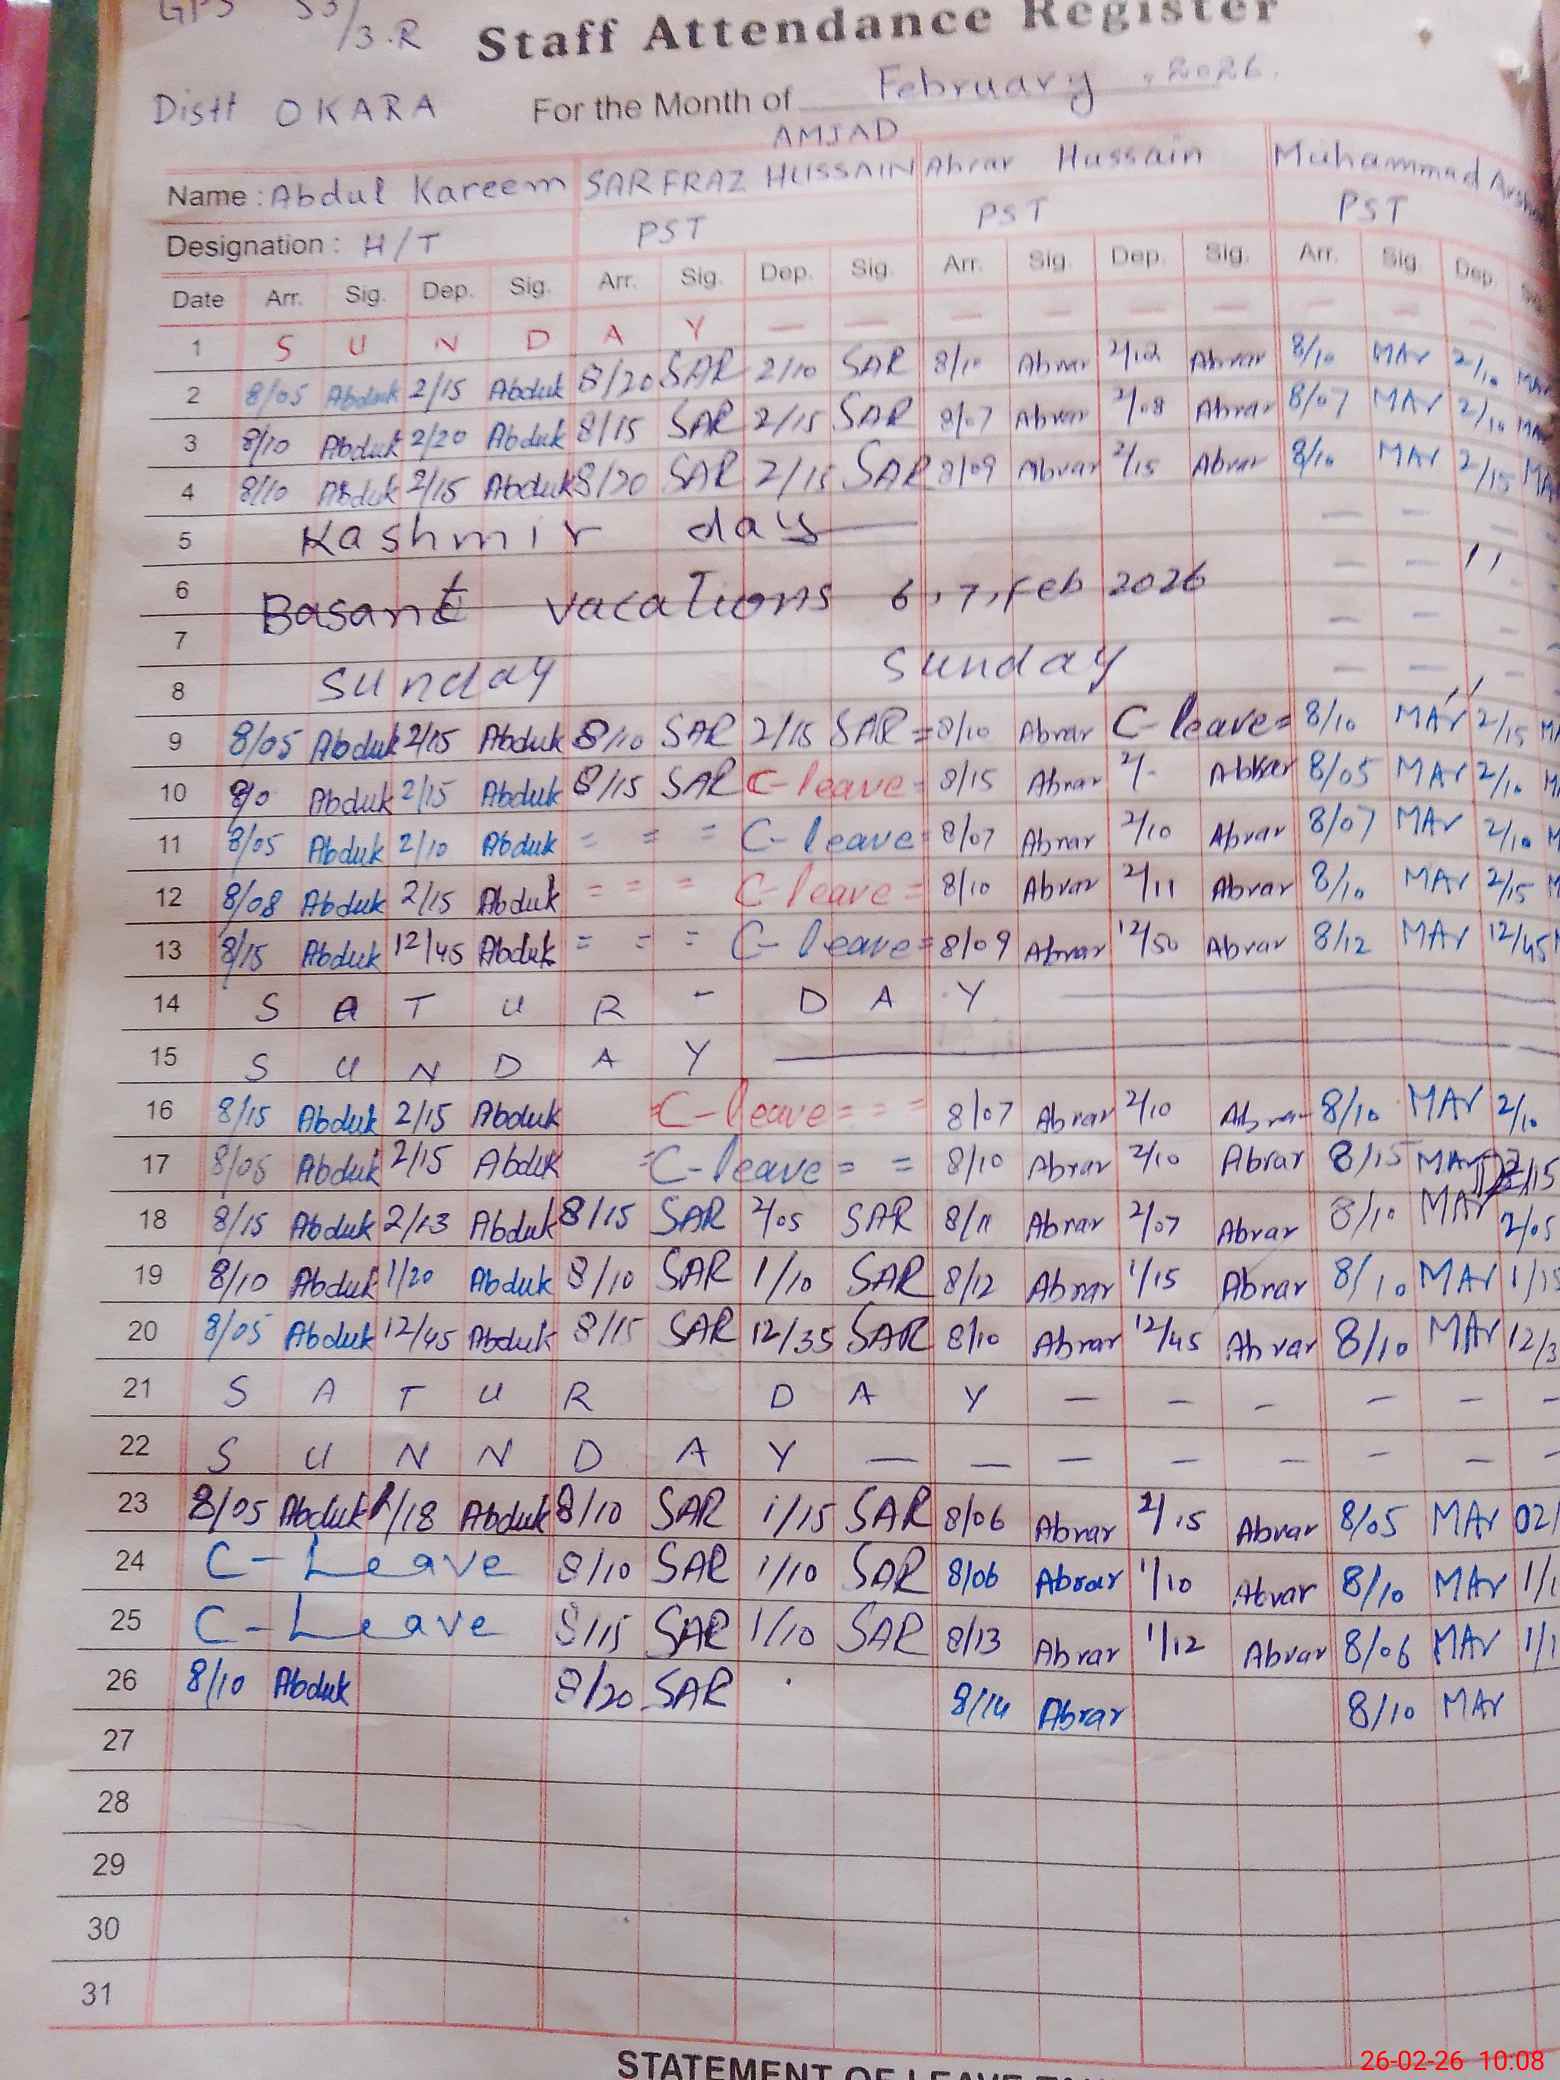 GPS 53/3.R
Staff Attendance Register
Distt OKARA For the Month of February, 2026.
Name : Abdul Kareem SARFRAZ AMJAD HUSSAIN Abrar Hussain Muhammad
Designation : H/T PST PST PST
Date Arr. Sig. Dep. Sig. Arr. Sig. Dep. Sig. Arr. Sig. Dep. Sig. Arr. Sig. Dep.
1 S U N D A Y — — — — — — — —
2 8/05 Abduk 2/15 Abduk 8/20 SAR 2/10 SAR 8/10 Abrar Abrar 8/10 MAr 2/10
3 8/10 Abduk 2/20 Abduk 8/15 SAR 2/15 SAR 8/07 Abrar 2/08 Abrar 8/07 MAr 2/10
4 8/10 Abduk 2/15 Abduk 8/20 SAR 2/15 SAR 8/09 Abrar 2/15 Abrar 8/10 MAr 2/15
5 Kashmir day —
6 Basant vacations 6, 7, Feb 2026
7
8 Sunday Sunday
9 8/05 Abduk 2/15 Abduk 8/10 SAR 2/15 SAR = 8/10 Abrar C-leave = 8/10 MAr 2/15
10 Abduk 2/15 Abduk 8/15 SAR C-leave = 8/15 Abrar 2/- Abrar 8/05 MAr 2/10
11 8/05 Abduk 2/10 Abduk = = = C-leave = 8/07 Abrar 2/10 Abrar 8/07 MAr 2/10
12 8/08 Abduk 2/15 Abduk = = = C-leave = 8/10 Abrar 2/11 Abrar 8/10 MAr 2/15
13 8/15 Abduk 12/45 Abduk = = = C-leave = 8/09 Abrar 12/50 Abrar 8/12 MAr 12/45
14 S A T U R - D A Y —
15 S U N D A Y —
16 8/15 Abduk 2/15 Abduk = C-leave = = = 8/07 Abrar 2/10 Abrar 8/10 MAr 2/10
17 8/05 Abduk 2/15 Abduk = C-leave = = 8/10 Abrar 2/10 Abrar 8/15 MAr 2/15
18 8/15 Abduk 2/13 Abduk 8/15 SAR 2/05 SAR 8/11 Abrar 2/07 Abrar 8/10 MAr 2/05
19 8/10 Abduk 1/20 Abduk 8/10 SAR 1/10 SAR 8/12 Abrar 1/15 Abrar 8/10 MAr 1/15
20 8/05 Abduk 12/45 Abduk 8/15 SAR 12/35 SAR 8/10 Abrar 12/45 Abrar 8/10 MAr 12/3
21 S A T U R D A Y — — — — — —
22 S U N N D A Y — — — — — — —
23 8/05 Abduk 1/18 Abduk 8/10 SAR 1/15 SAR 8/06 Abrar 2/15 Abrar 8/05 MAr 02/
24 C-Leave 8/10 SAR 1/10 SAR 8/06 Abrar 1/10 Abrar 8/10 MAr 1/1
25 C-Leave 8/15 SAR 1/10 SAR 8/13 Abrar 1/12 Abrar 8/06 MAr 1/1
26 8/10 Abduk 8/20 SAR 8/14 Abrar 8/10 MAr
27
28
29
30
31
STATEMENT OF LEAVE
26-02-26 10:08